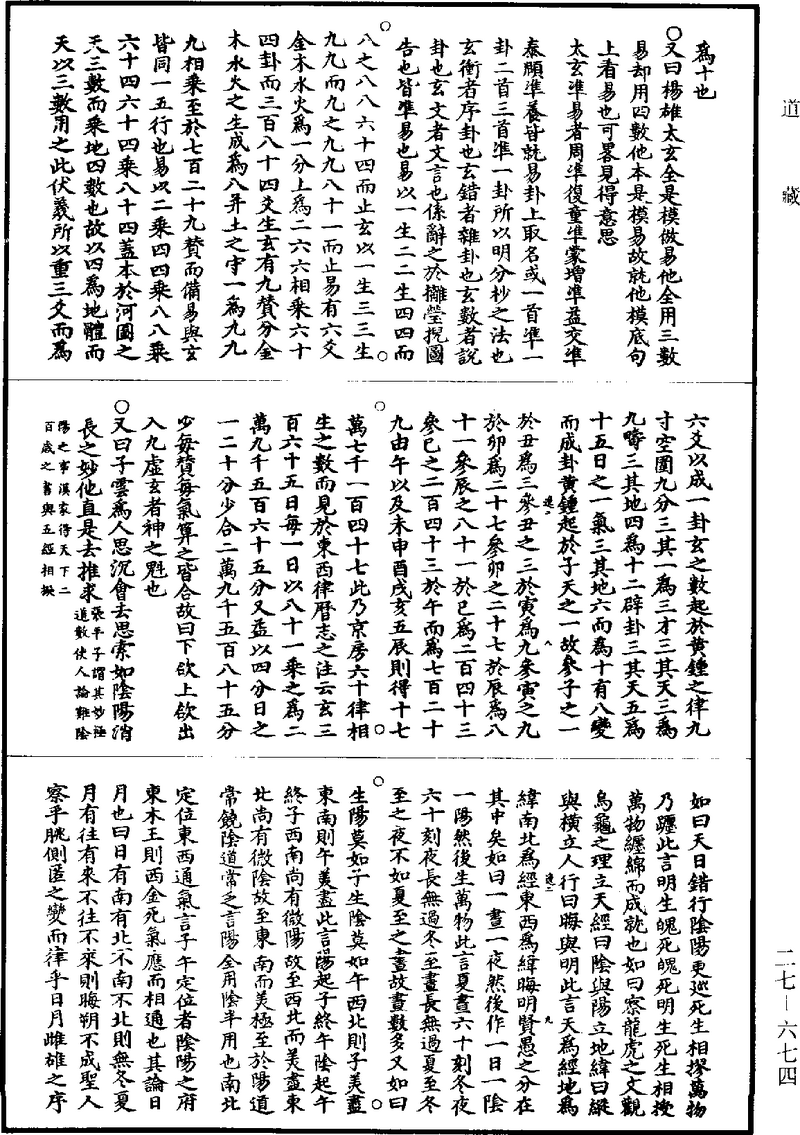 道藏
爲十也
○又曰楊雄太玄全是模倣易他全用三數
易却用四數他本是模易故就他模底句
上看易也可畧見得意思
太玄準易者周準復童準蒙增準益交準
泰頤準養皆就易卦上取名或一首準一
卦二首三首準一卦所以明分杪之法也
玄衝者序卦也玄錯者雜卦也玄數者說
卦也玄文者文言也係辭之於攡瑩掜圖
告也皆準易也易以一生二二生四四而
八之八八六十四而止玄以一生三三生
九九而九之九九八十一而止易有六爻
金木水火爲一分上爲二六六相乘六十
四卦而三百八十四爻生玄有九贊分金
木水火之生成爲八并土之守一爲九九
九相乘至於七百二十九贊而備易與玄
皆同一五行也易以二乘四四乘八八乘
六十四六十四乘八十四蓋本於河圖之
天三數而乘地四數也故以四爲地體而
天以三數用之此伏羲所以重三爻而爲
六爻以成一卦玄之數起於黃鍾之律九
寸空圍九分三其一爲三才三其天三爲
九疇三其地四爲十二辟卦三其天五爲
十五日之一氣三其地六而爲十有八變
而成卦黃鍾起於子天之一故參子之一
於丑爲三參丑之三於寅爲九參寅之九
於卯爲二十七參卯之二十七於辰爲八
十一參辰之八十一於巳爲二百四十三
參巳之二百四十三於午而爲七百二十
九由午以及未申酉戌亥五辰則得十七
萬七千一百四十七此乃京房六十律相
生之數而見於東西律曆志之注云玄三
百六十五日每一日以八十一乘之爲二
萬九千五百六十五分又益以四分日之
一二十分少合二萬九千五百八十五分
少每贊每氣算之皆合故曰下欲上欲出
入九虛玄者神之魁也
○又曰子雲爲人思沉會去思索如陰陽消
長之妙他直是去推求張平子謂其妙極道數使人論難陰
陽之事漢家得天下二百歲之書與五經相擬
如曰天日錯行陰陽更巡死生相摎萬物
乃纏此言明生魄死魄死明生死生相授
萬物纏綿而成就也如曰察龍虎之文觀
鳥龜之理立天經曰陰與陽立地緯曰縱
與橫立人行曰晦與明此言天爲經地爲
緯南北爲經東西爲緯晦明賢愚之分在
其中矣如曰一晝一夜然後作一日一陰
一陽然後生萬物此言夏晝六十刻冬夜
六十刻夜長無過冬至晝長無過夏至冬
至之夜不如夏至之晝故晝數多又如曰
生陽莫如子生陰莫如午西北則子美盡
東南則午美盡此言陽起子終午陰起午
終子西南尚有微陽故至西北而美盡東
北尚有微陰故至東南而美極至於陽道
常饒陰道常之言陽全用陰半用也南北
定位東西通氣言子午定位者陰陽之府
東木王則西金死氣應而相通也其論日
月也曰日有南有北不南不北則無冬夏
月有往有來不往不來則晦朔不成聖人
察乎朓側匿之變而律乎日月雌雄之序
二七—六七四